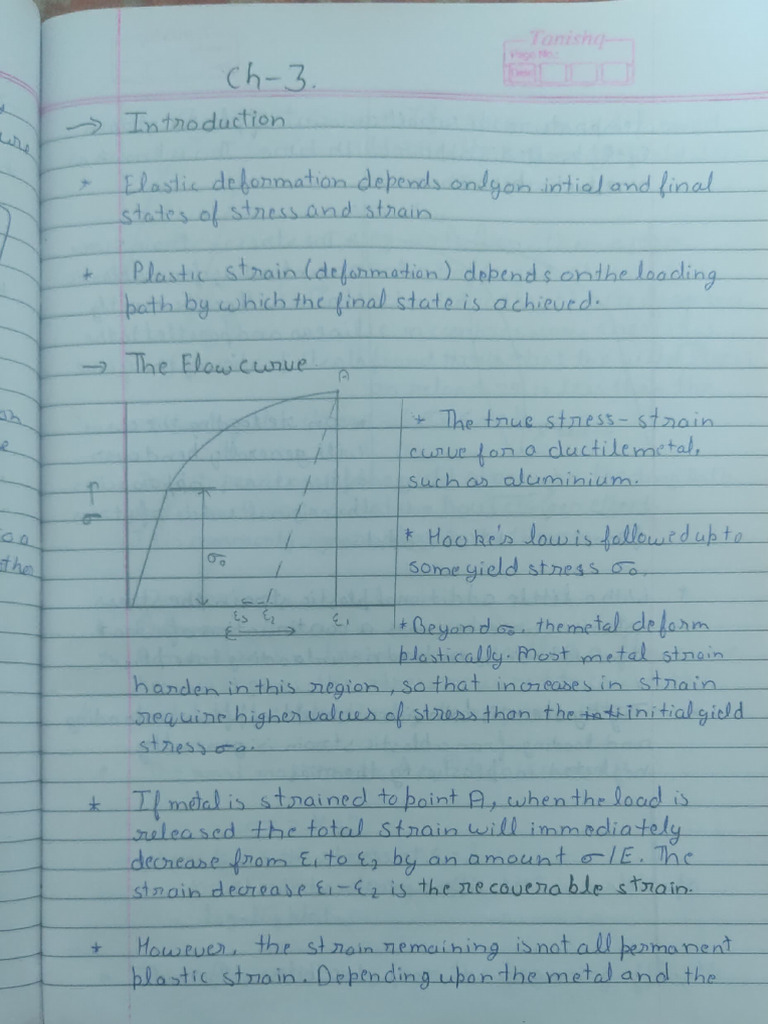 Tanishq
Page No:
Date
Ch-3.
→ Introduction
* Elastic deformation depends only on intial and final
states of stress and strain
* Plastic strain (deformation) depends on the loading
path by which the final state is achieved.
→ The Flow curve
A
↑
σ
σ₀
ε₃ ε₂ ε₁
ε →
* The true stress-strain
curve for a ductile metal,
such as aluminium.
* Hooke's law is followed up to
some yield stress σ₀.
* Beyond σ₀, the metal deform
plastically. Most metal strain
harden in this region, so that increases in strain
require higher values of stress than the initial yield
stress σ₀.
* If metal is strained to point A, when the load is
released the total strain will immediately
decrease from ε₁ to ε₂ by an amount σ/E. The
strain decrease ε₁-ε₂ is the recoverable strain.
* However, the strain remaining is not all permanent
plastic strain. Depending upon the metal and the